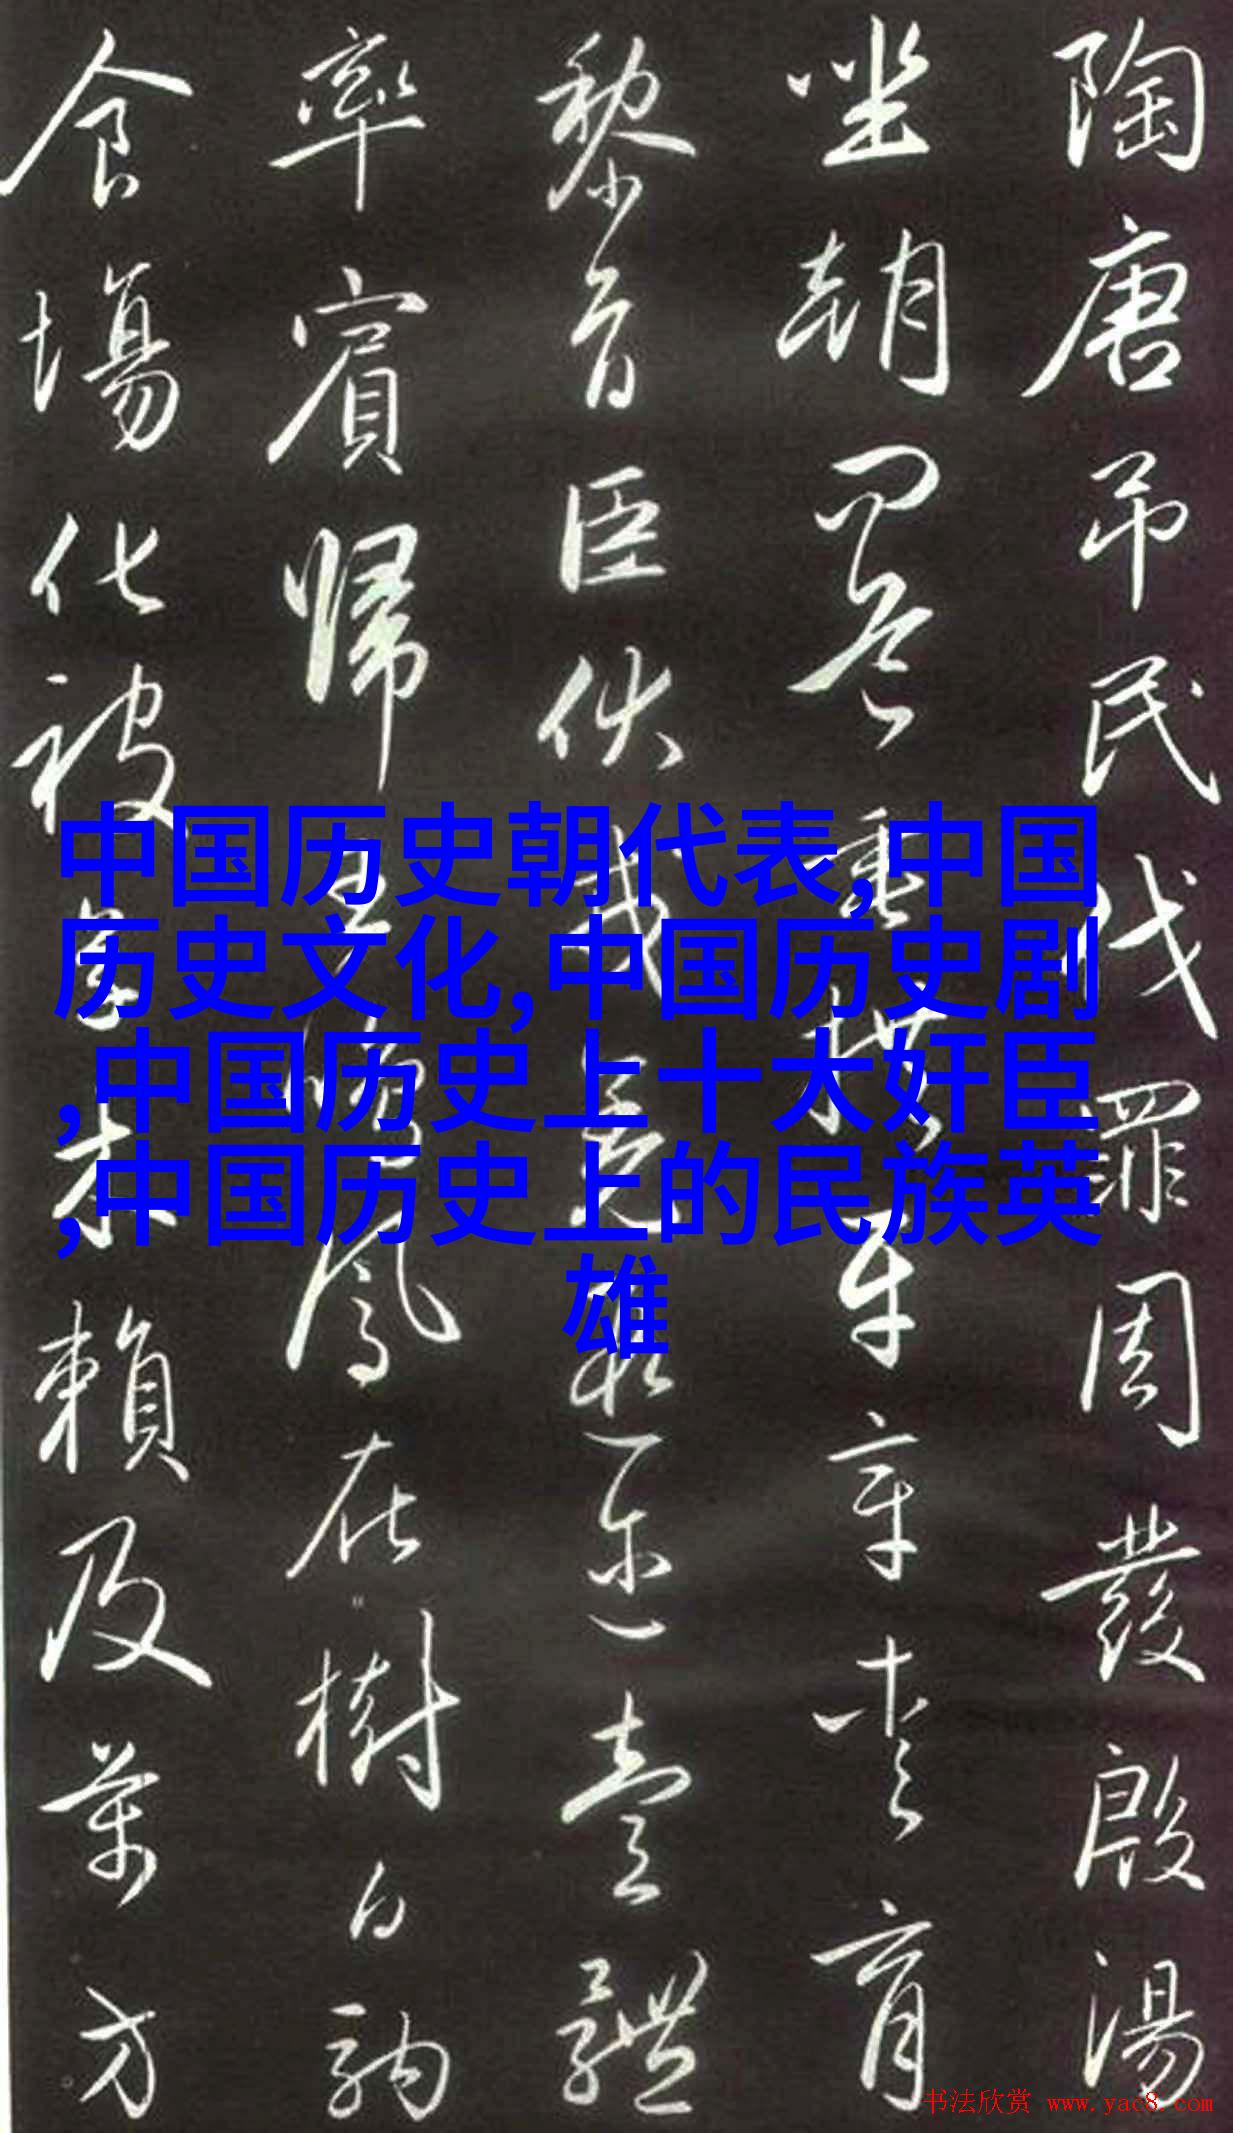 陶唐吊民伐罪周發殷湯
坐朝問道垂拱平章愛育
黎首臣伏戎羌遐迩壹體
率賓歸王鳴鳳在樹白駒
食場化被草木賴及萬方
中国历史朝代表,中国
历史文化,中国历史剧
,中国历史上十大奸臣
,中国历史上的民族英
雄
书法欣赏 www.yac8.com